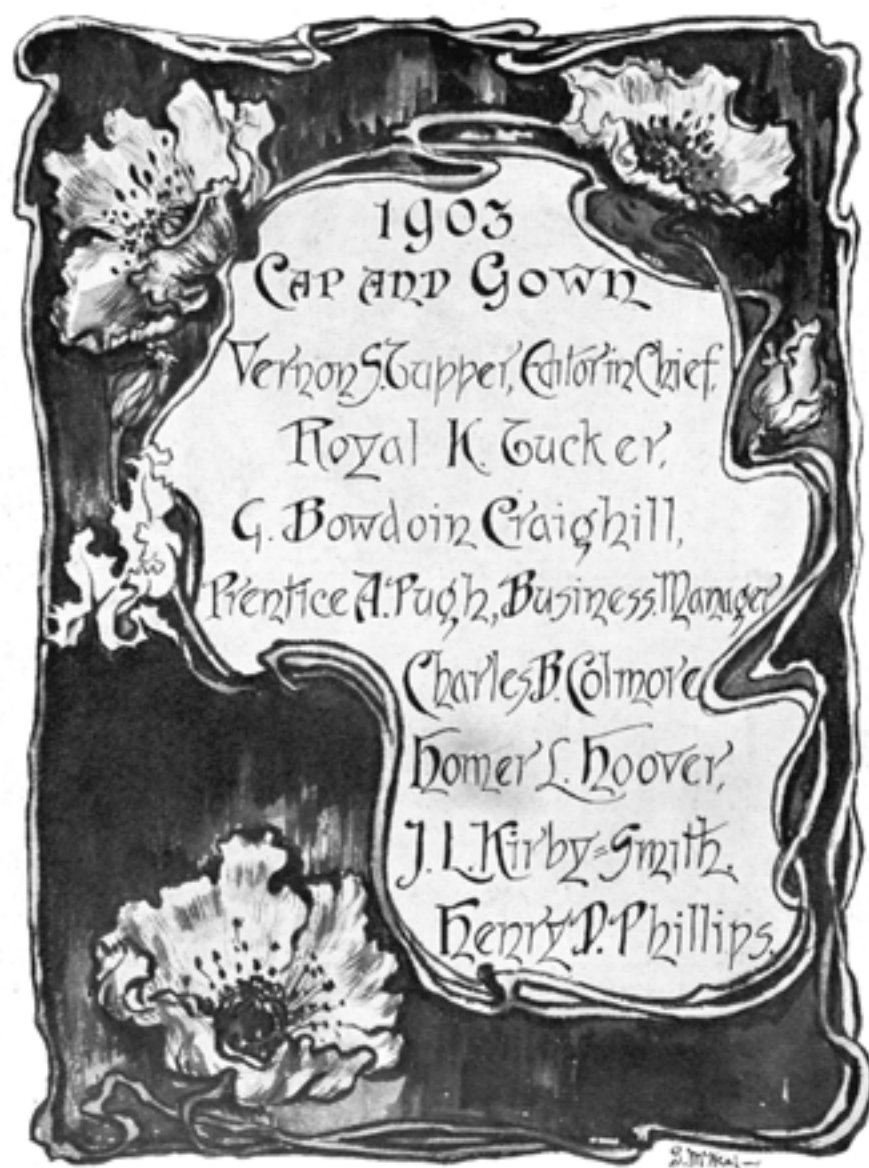 1903
CAP AND GOWN
Vernon S. Tupper, Editor in Chief.
Royal K. Tucker,
G. Bowdoin Craighill,
Prentice A. Pugh, Business Manager
Charles B. Colmore
Homer L. Hoover,
J. L. Kirby=Smith.
Henry D. Phillips.